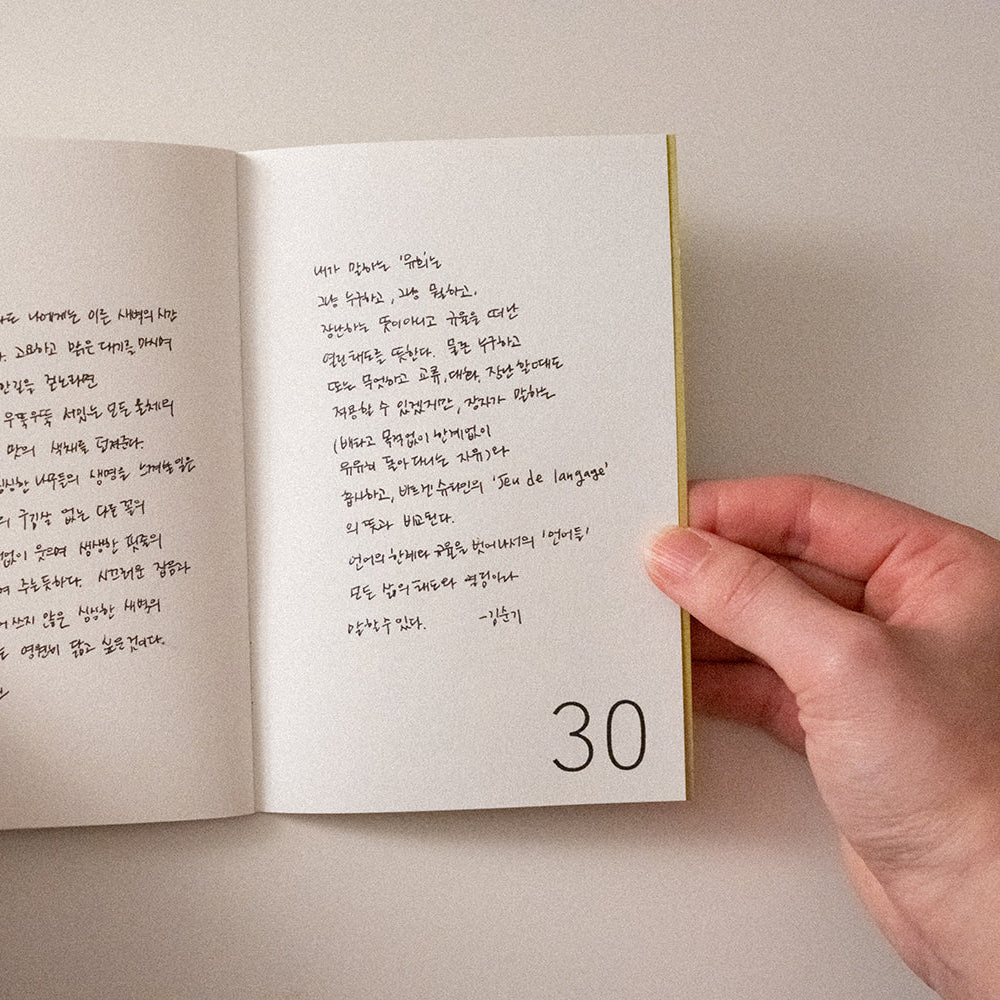 나에게는 이른 새벽의 시간
고요하고 맑은 대기를 마시며
한길을 걷노라면
우뚝우뚝 서있는 모든 물체의
맛의 색채를 던져준다.
싱싱한 나무들의 생명을 느껴볼 일은
의 구김살 없는 다른 꽃의
없이 웃으며 생생한 핏줄의
여 주는듯하다. 시끄러운 잡음과
쓰지 않은 싱싱한 새벽의
영원히 닮고 싶은 것이다.
내가 말하는 '유희'는
그냥 누구하고, 그냥 뭘하고,
장난하는 뜻이 아니고 규율을 떠난
열린 태도를 뜻한다. 물론 누구하고
또는 무엇하고 교류, 대화, 장난 할 때도
적용할 수 있겠지만, 장자가 말하는
(배타고 목적없이 한계없이
유유히 돌아다니는 자유)와
흡사하고, 비트겐슈타인의 'Jeu de langage'
의 뜻과 비교된다.
언어의 한계와 규율을 벗어나서의 '언어들'
모든 삶의 태도와 열정이라
말할 수 있다. -김순기
30